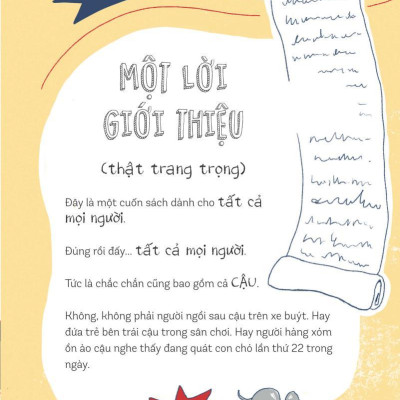 MỘT LỜI
GIỚI THIỆU
(thật trang trọng)
Đây là một cuốn sách dành cho tất cả
mọi người.
Đúng rồi đấy... tất cả mọi người.
Tức là chắc chắn cũng bao gồm cả CẬU.
Không, không phải người ngồi sau cậu trên xe buýt. Hay
đứa trẻ bên trái cậu trong sân chơi. Hay người hàng xóm
ồn ào cậu nghe thấy đang quát con chó lần thứ 22 trong
ngày.